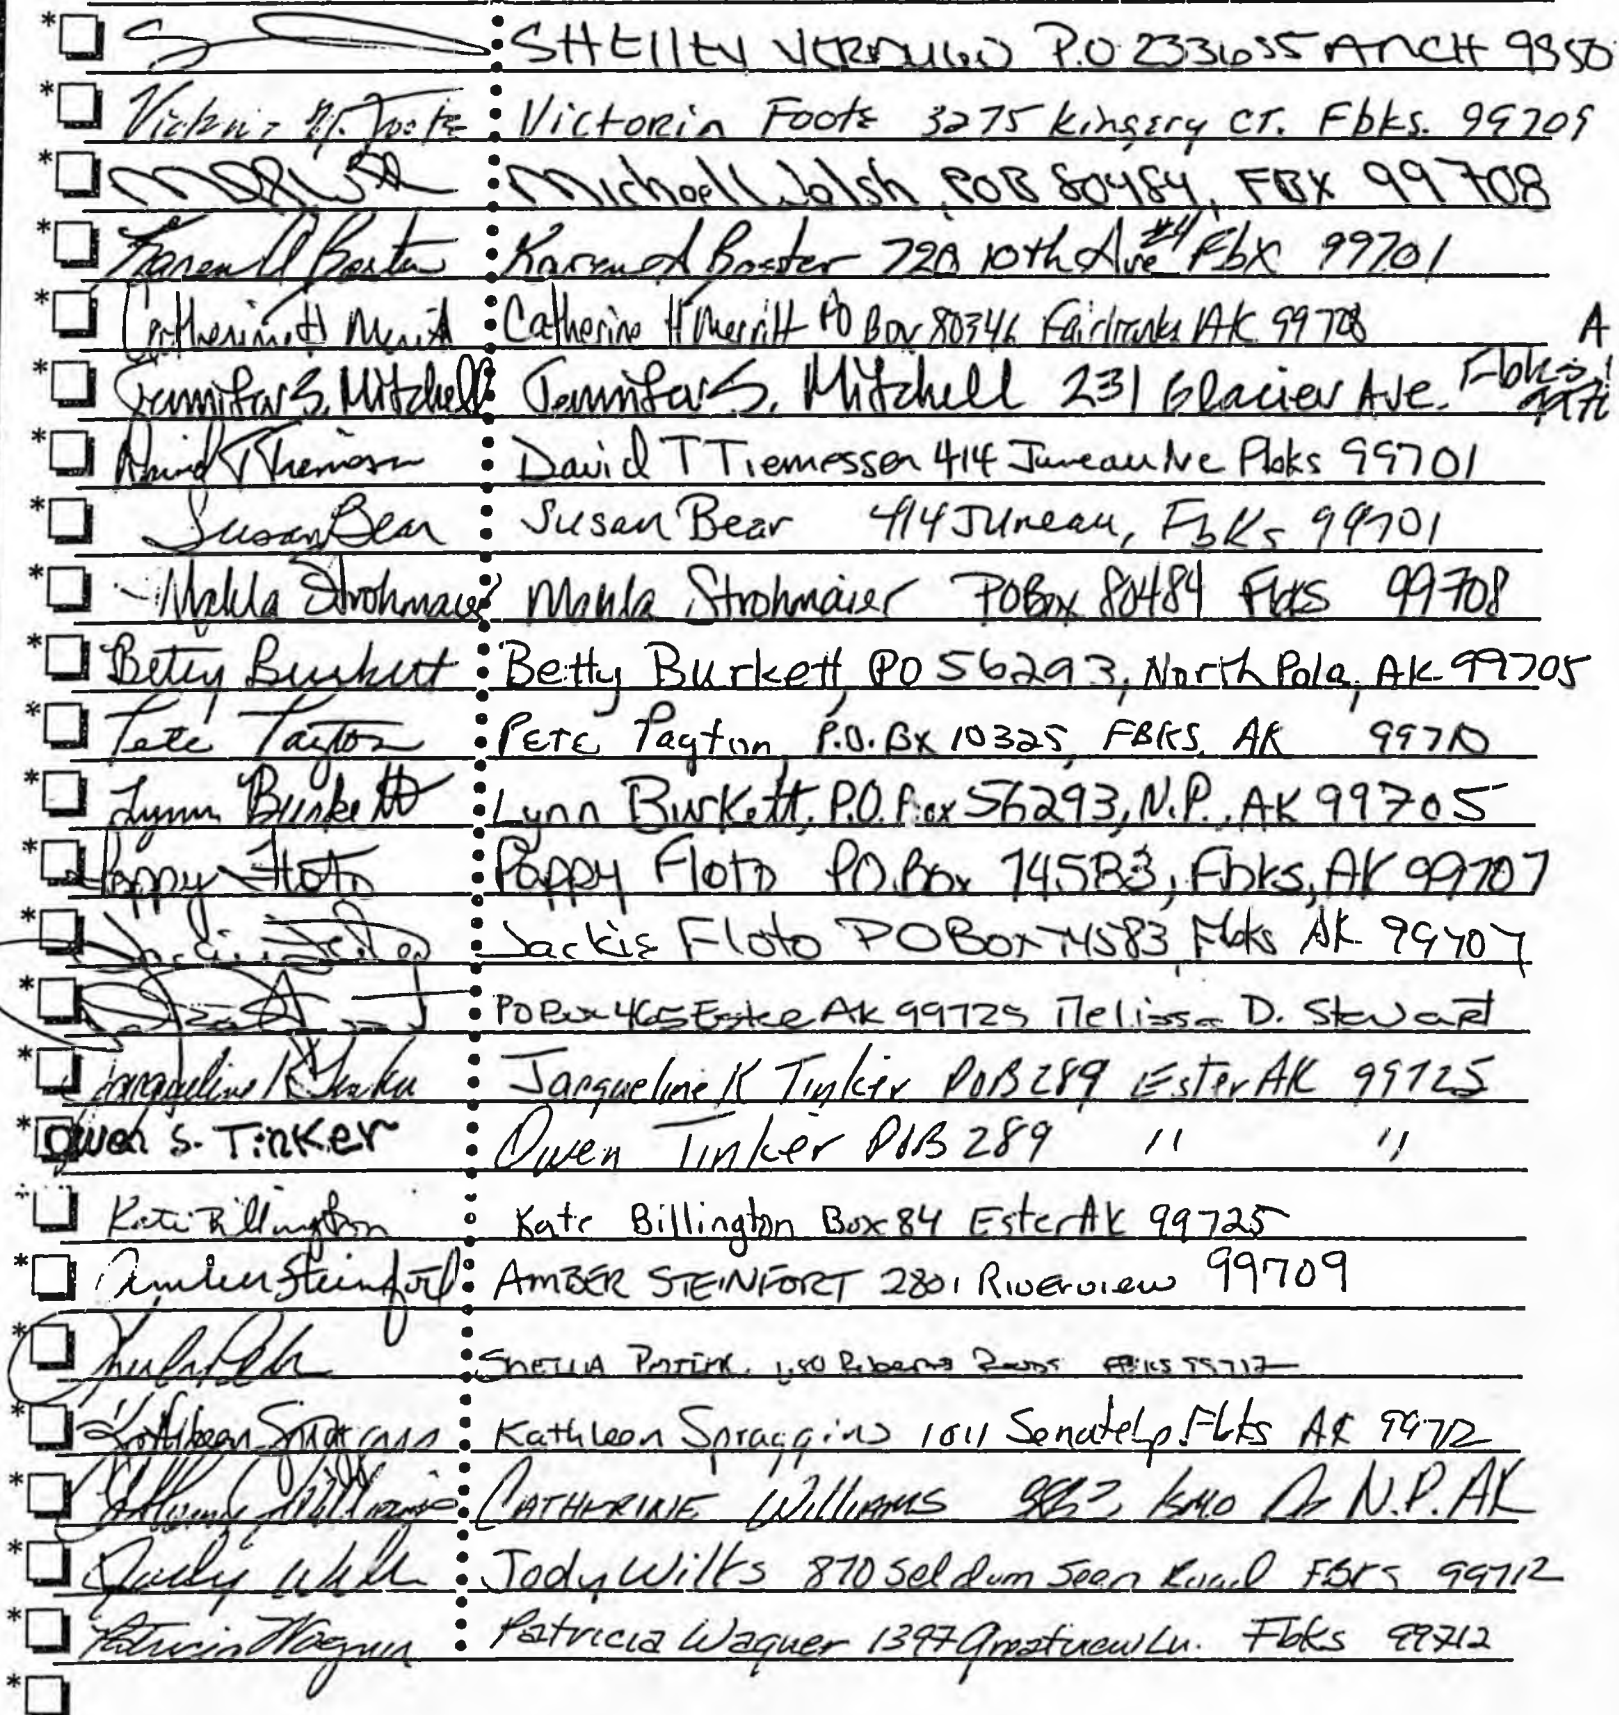 * SHEllEY VERDUGO P.O 233655 ANCH 9950
* Victoria M. Foote Victoria Foote 3275 Kingsry CT. Fbks. 99709
* Michael Walsh, POB 80484, FBX 99708
* Karen A Baxter 720 10th Ave #4 Fbx 99701
* Catherine H Merritt Catherine H Merritt PO Box 80346 Fairbanks AK 99708
A
* Jennifer S. Mitchell Jennifer S. Mitchell 231 Glacier Ave. Fbks
* David T Tiemessen David T Tiemessen 414 Juneau Ave Fbks 99701
* Susan Bear Susan Bear 414 Juneau, Fbks 99701
* Mahla Strohmaier Mahla Strohmaier PO Box 80484 Fbks 99708
* Betty Burkett Betty Burkett, PO 56293, North Pole, AK 99705
* Pete Payton Pete Payton, P.O. Bx 10325, FBKS, AK 99710
* Lynn Burkett Lynn Burkett, P.O. Box 56293, N.P., AK 99705
* Poppy Floto Poppy Floto P.O. Box 74583, Fbks, AK 99707
* Jackie Floto PO Box 74583 Fbks AK 99707
* PO Box 465 Ester AK 99725 Melissa D. Stewart
* Jacqueline K Tinker Jacqueline K Tinker POB 289 Ester AK 99725
* Owen S. Tinker Owen Tinker POB 289 " "
Kate Billington Kate Billington Box 84 Ester AK 99725
* Amber Steinfort AMBER STEINFORT 2801 Riverview 99709
* SHEILA Roberts FBKS
* Kathleen Spraggins Kathleen Spraggins 1011 Senate Lp. Fbks AK 99712
* Catherine Williams CATHERINE Williams Dr N.P. AK
* Jody Wilts 870 Seldum Seen Road FBKS 99712
* Patricia Wagner Patricia Wagner 1397 Greatview Ln. Fbks 99712
*